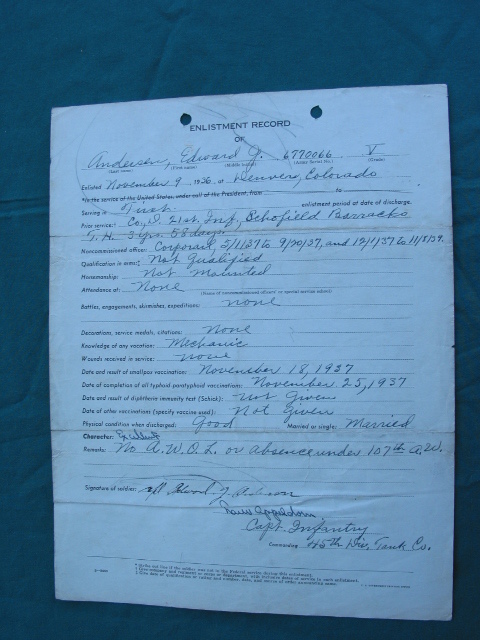 ENLISTMENT RECORD
OF
Andersen, Edward J. 6770066 V
(Last name) (First name) (Middle initial) (Army Serial No.) (Grade)
Enlisted November 9, 1936, at Denver, Colorado
*In the service of the United States, under call of the President, from to
Serving in First enlistment period at date of discharge.
Prior service: Co. D. 21st. Inf, Schofield Barracks
T. H. 3 yrs. 58 days
Noncommissioned officer: Corporal, 5/1/37 to 9/20/37, and 12/1/37 to 11/8/39.
Qualification in arms: Not Qualified
Horsemanship: Not Mounted
Attendance at: None
(Name of noncommissioned officers' or special service school)
Battles, engagements, skirmishes, expeditions: none
Decorations, service medals, citations: None
Knowledge of any vocation: Mechanic
Wounds received in service: none
Date and result of smallpox vaccination: November 18, 1937
Date of completion of all typhoid-paratyphoid vaccinations: November 25, 1937
Date and result of diphtheria immunity test (Schick): not Given
Date of other vaccinations (specify vaccine used): Not Given
Physical condition when discharged: Good Married or single: Married
Character: Excellent
Remarks: No A.W.O.L. or absence under 107th A.W.
Signature of soldier: Edward J.
Capt. Infantry
Commanding 45th Div, Tank Co.